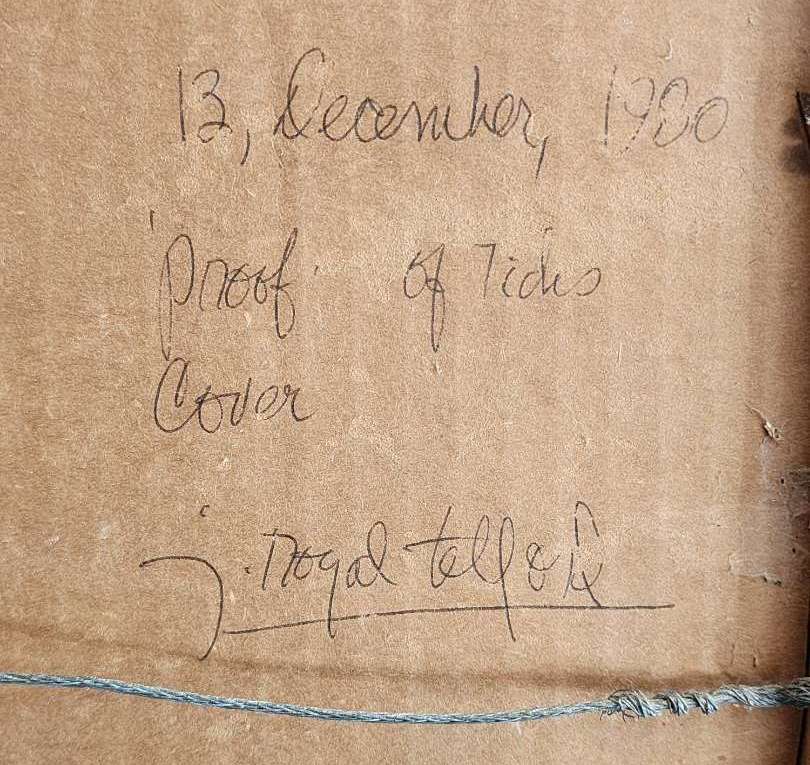 13, December, 1980
Proof of Tides
Cover
j. royal